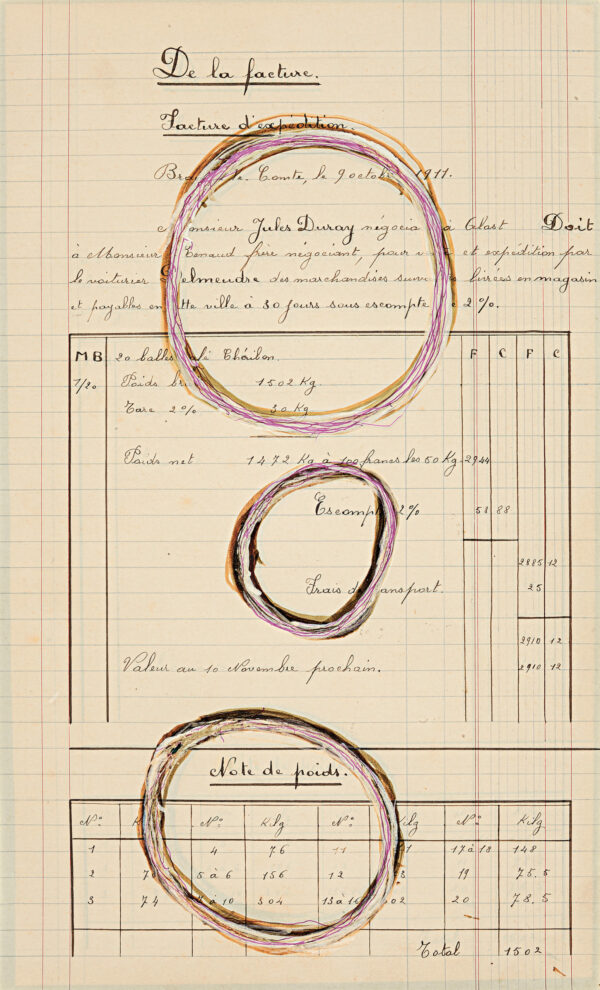 De la facture.
Facture d'expédition.
Comte, le 9 1911.
Monsieur Jules Duray à Alost Doit
à Monsieur Renaud frère négociant, pour et expédition par
le voiturier des marchandises livrées en magasin
et payables en cette ville à 30 jours sous escompte 2%.
MB 20 balles Chéribon. F C F C
1/20 Poids 1502 Kg.
Tare 2% 30 Kg
Poids net 1472 Kg à 100 francs les 50 Kg 2944
Escompte 2% 58 88
2885 12
Frais de transport. 25
2910 12
Valeur au 10 Novembre prochain. 2910 12
Note de poids.
Nos Nos Kilg Nos Nos Kilg
1 4 76 11 17 à 18 148
2 5 à 6 156 12 19 75.5
3 74 à 10 304 13 à 16 20 78.5
Total 1502